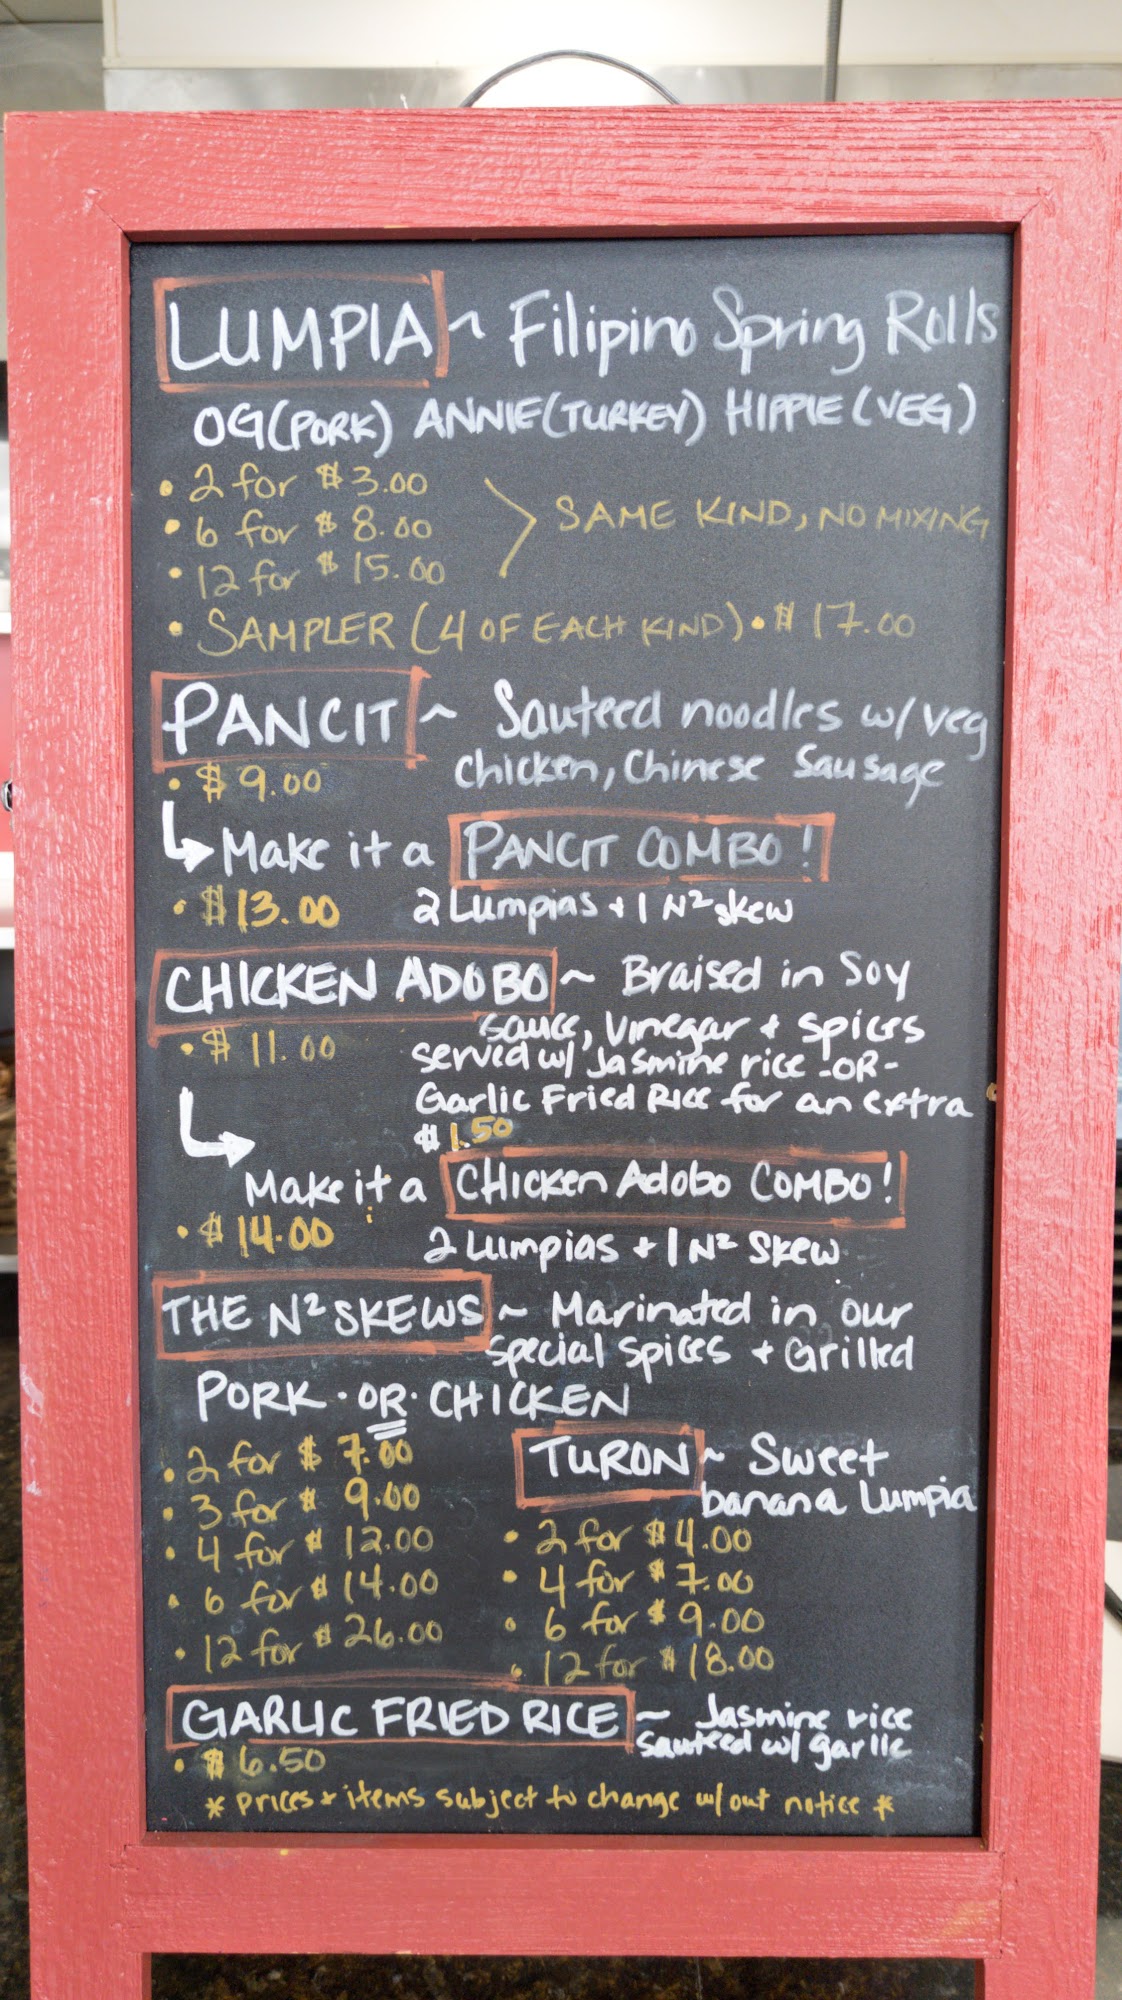 LUMPIA ~ Filipino Spring Rolls
OG(PORK) ANNIE(TURKEY) HIPPIE(VEG)
• 2 for $3.00
• 6 for $8.00
• 12 for $15.00
SAME KIND, NO MIXING
• SAMPLER (4 OF EACH KIND) • $17.00
PANCIT ~ Sauteed noodles w/ veg
chicken, Chinese Sausage
• $9.00
Make it a PANCIT COMBO!
• $13.00 2 Lumpias + 1 N² skew
CHICKEN ADOBO ~ Braised in Soy
sauce, Vinegar + spices
• $11.00
served w/ Jasmine rice -OR-
Garlic Fried Rice for an extra
$1.50
Make it a Chicken Adobo COMBO!
• $14.00 2 Lumpias + 1 N² Skew
THE N² SKEWS ~ Marinated in our
special spices + Grilled
PORK • OR • CHICKEN
• 2 for $7.00
• 3 for $9.00
• 4 for $12.00
• 6 for $14.00
• 12 for $26.00
TURON ~ Sweet
banana Lumpia
• 2 for $4.00
• 4 for $7.00
• 6 for $9.00
• 12 for $18.00
GARLIC FRIED RICE ~ Jasmine rice
sauteed w/ garlic
• $6.50
* prices + items subject to change w/out notice *